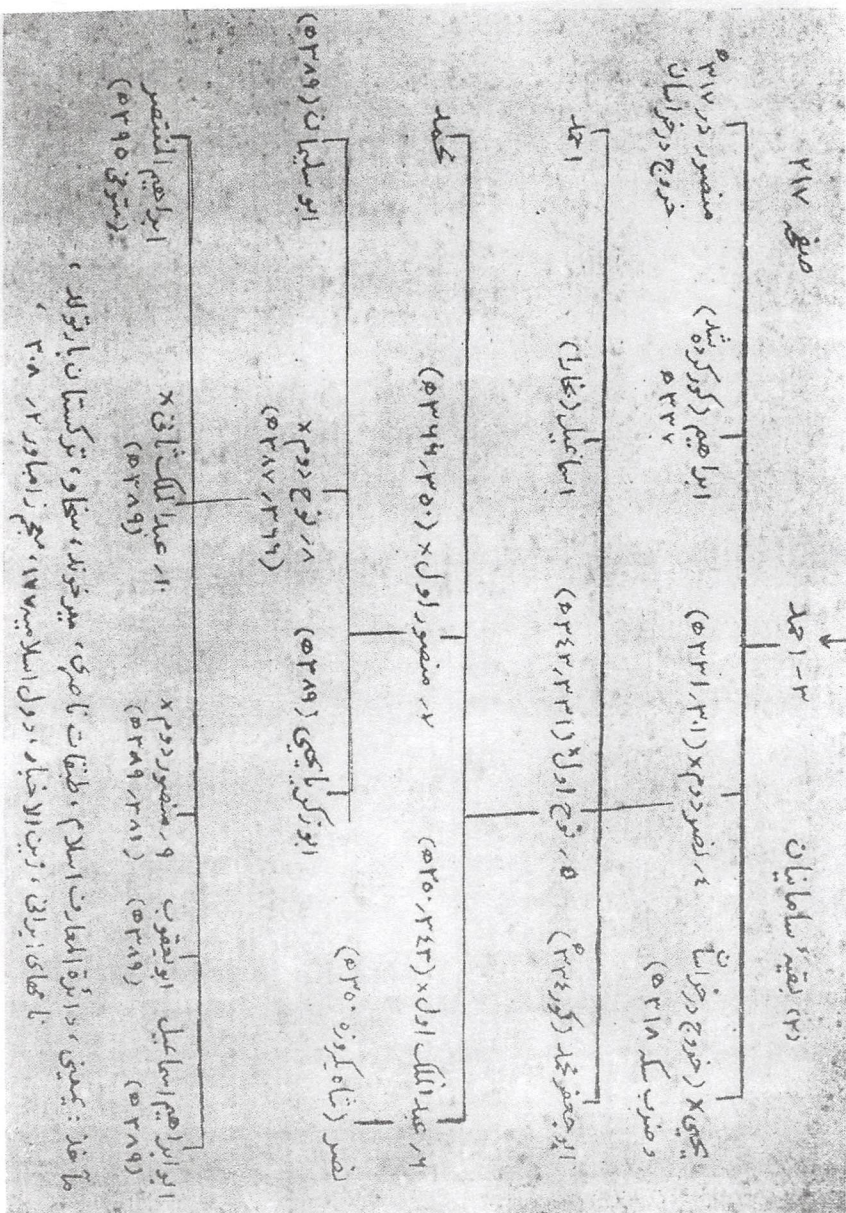 صفحه ۲۱۷
(۲) بقیهٔ سامانیان
۳- احمد
یحیی × (خروج در خراسان
و ضرب سکه ۳۱۸ ه)
۴ر نصر دوم × (۳۰۱ر۳۳۱ ه)
ابراهیم (کور کرده شد)
۳۳۷ ه
منصور در ۳۱۷ ه
خروج در خراسان
ابو جعفر محمد (کور ۳۳۴ ه)
۵ر نوح اول × (۳۳۱ر۳۴۳ ه)
اسماعیل (بخارا)
احمد
۶ر عبدالملک اول × (۳۴۳ر۳۵۰ ه)
۷ر منصور اول × (۳۵۰ر۳۶۶ ه)
محمد
نصر (شاه یکروزه ۳۵۰ ه)
ابو زکریا یحیی (۳۸۹ ه)
۸ر نوح دوم ×
(۳۶۶ر۳۸۷ ه)
ابو سلیمان (۳۸۹ ه)
ابو ابراهیم اسماعیل
(۳۸۹ ه)
ابو یعقوب
(۳۸۹ ه)
۹ر منصور دوم ×
(۳۸۱ر۳۸۹ ه)
۱۰ر عبدالملک ثانی ×
(۳۸۹ ه)
ابراهیم المنتصر
(متوفی ۳۹۵ ه)
مآخذ : یمینی، دائرة المعارف اسلام، طبقات ناصری، میر خوند، سخاو، ترکستان بارتولد،
نامهای ایرانی، زین الاخبار، دول اسلامیه ۱۷۷، معجم زامباور ۲ر ۳۰۸،